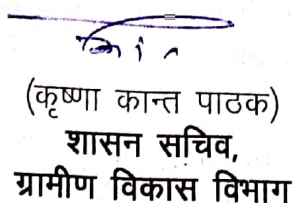 (कृष्णा कान्त पाठक)
शासन सचिव,
ग्रामीण विकास विभाग